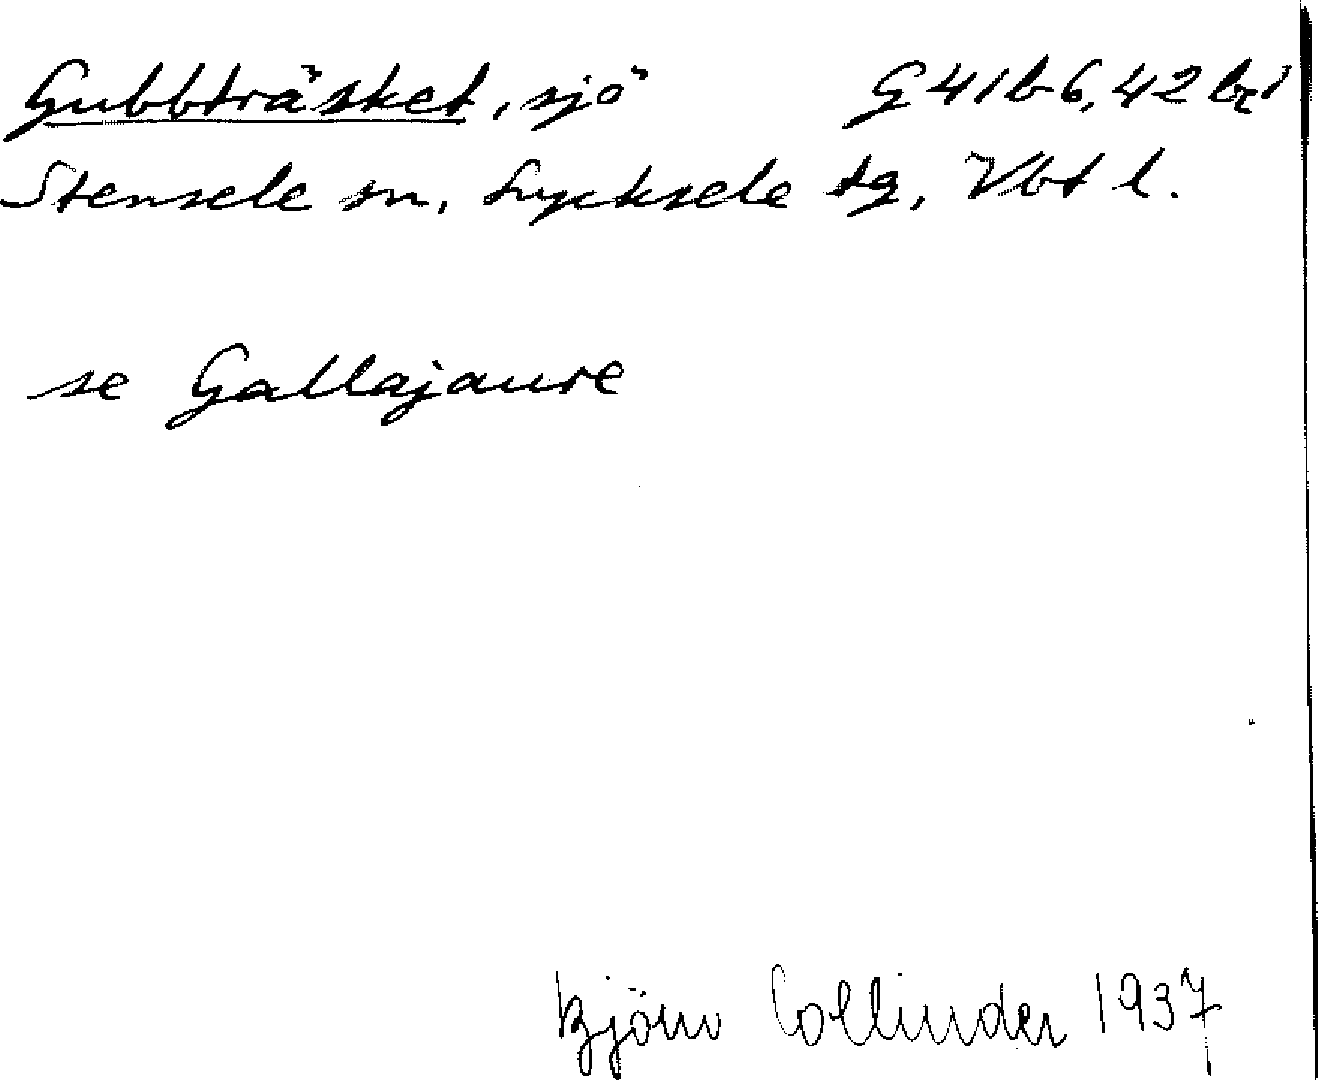 Gubbträsket, sjö G 41 b 6, 42 b
Stensele sn, Lycksele tg, Vbt l.
se Gallajaure
Björn Collinder 1937